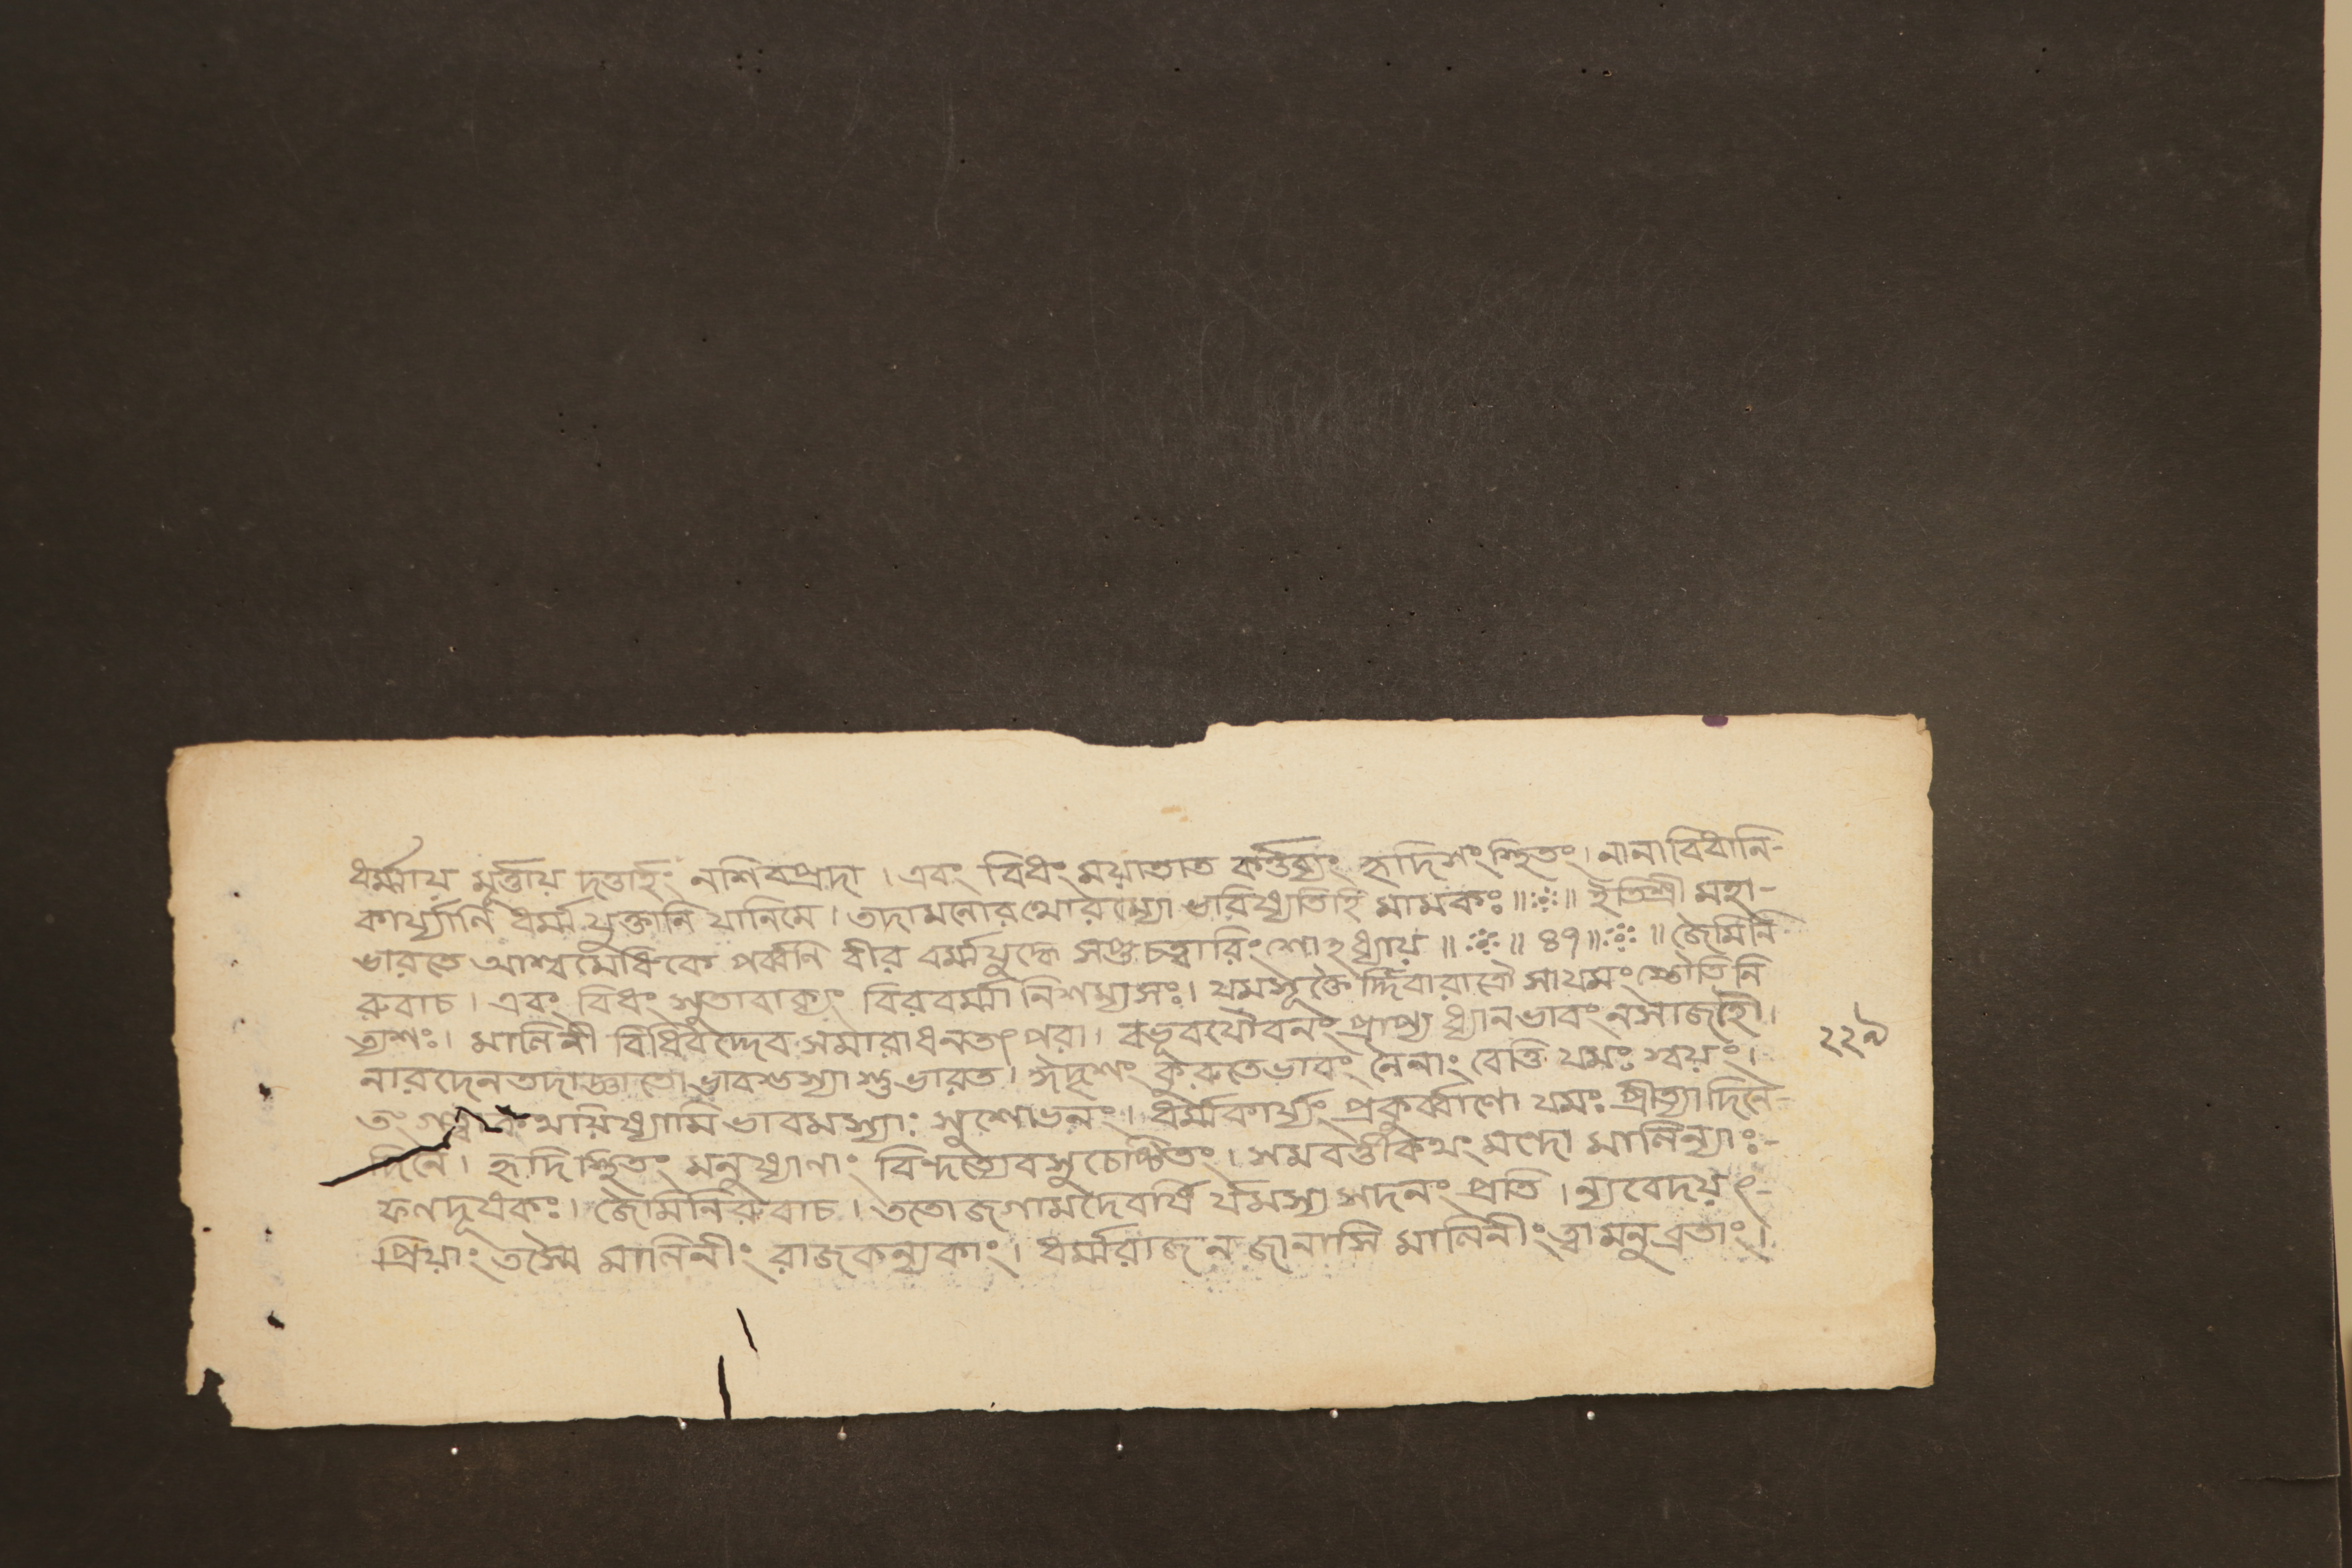 ধর্ম্মায় মূর্ত্তায় দত্তাহং নশিবপ্রদা । এবং বিধং ময়াতাত কর্ত্তব্যং হৃদিশংস্থিতং । নানাবিধানি-
কার্য্যাণি ধর্ম্ম যুক্তানি যানিমে । তদামনোরথোরম্যো ভারিষ্যতিহি মামকঃ ॥ঃ॥ ইতিশ্রী মহা-
ভারতে আশ্বমেধিকে পর্ব্বনি বীর বর্ম্মযুদ্ধে সপ্তচত্বারিংশোহধ্যায় ॥ঃ॥ ৪৭॥ঃ॥ জৈমিনি
রুবাচ । এবং বিধং সুতাবাক্যং বিরবর্ম্মা নিশম্যসঃ । যমসূক্তৈ র্দ্দিবারাত্রৌ সাযমং স্তৌতি নি
ত্যশঃ । মালিনী বিধিবদ্দেব সমারাধনতৎপরা । বভূবযৌবনং প্রাপ্য ধ্যানভাবং নসাজহৌ ।
নারদেনতদাজ্ঞাতো ভাবস্তস্যাশুভারত । ঈদৃশং কুরুতেভাবং নৈনাং বেত্তি যমঃ স্বয়ং ।
তং গত্বা কথয়িষ্যামি ভাবমস্যাঃ সুশোভনং । ধর্ম্মকার্য্যং প্রকুর্ব্বাণো যমঃ প্রীত্যাদিনে-
দিনে । হৃদিস্থিতং মনুষ্যাণাং বিন্দত্যেবসুচেষ্টিতং । সমবর্ত্তীকিথং মন্দো মালিন্যাঃ-
ফণদূষকঃ । জৈমিনিরুবাচ । ততোজগামদৈবর্ষি র্যমস্য সদনং প্রতি । ন্যবেদয়ৎ-
প্রিয়াং তস্মৈ মালিনীং রাজকন্যকাং । ধর্ম্মরাজ নজানাসি মালিনীং ত্বামনুব্রতাং ।
২২৯